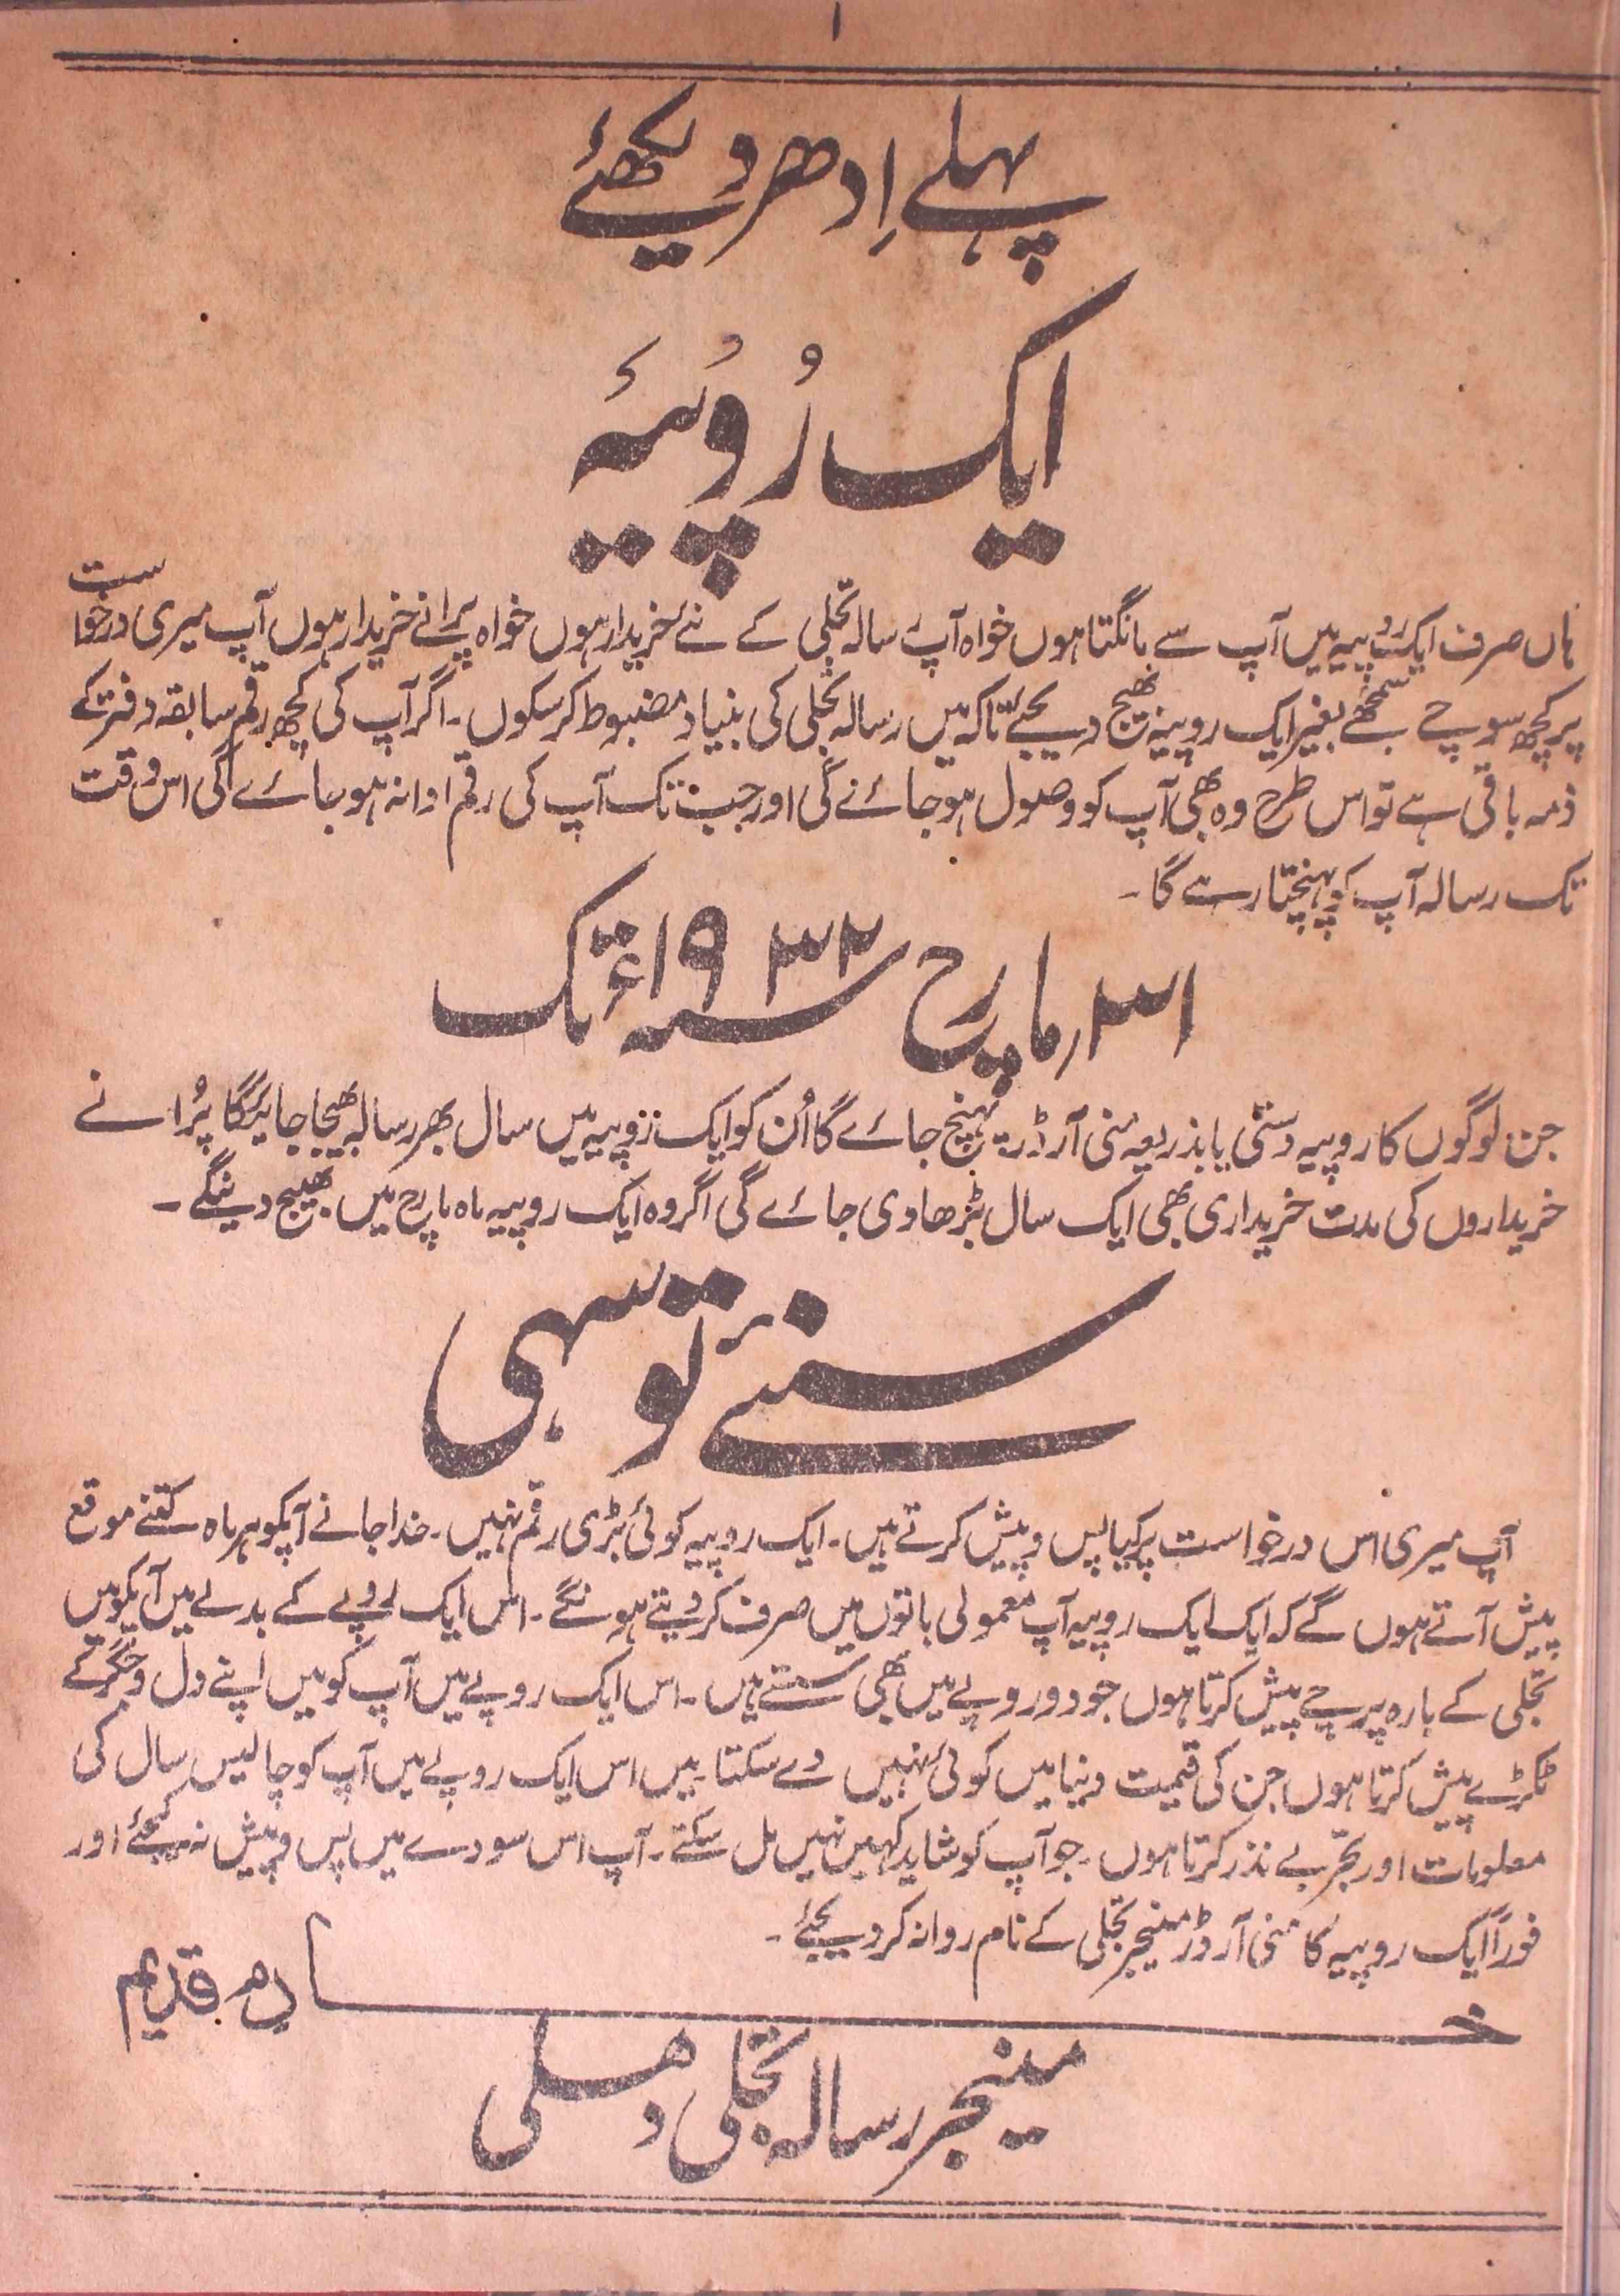 ۱
پہلے اِدھر دیکھئے
ایک رُوپیَہ
ہاں صرف ایک روپیہ میں آپ سے مانگتا ہوں خواہ آپ رسالہ تجلی کے نئے خریدار ہوں خواہ پرانے خریدار ہوں آپ میری درخواست
پر کچھ سوچے سمجھے بغیر ایک روپیہ بھیج دیجئے تاکہ میں رسالہ تجلی کی بنیاد مضبوط کرسکوں۔ اگر آپ کی کچھ رقم سابقہ دفتر کے
ذمہ باقی ہے تو اس طرح وہ بھی آپ کو وصول ہو جائے گی اور جب تک آپ کی رقم ادا نہ ہو جائے گی اس وقت
تک رسالہ آپ کو پہنچتا رہے گا۔
۳۱ر مارچ ۱۹۳۲ء تک
جن لوگوں کا روپیہ دستی یا بذریعہ منی آرڈر پہنچ جائے گا اُن کو ایک روپیہ میں سال بھر رسالہ بھیجا جائیگا پُرانے
خریداروں کی مدت خریداری بھی ایک سال بڑھادی جائے گی اگر وہ ایک روپیہ ماہ مارچ میں بھیج دینگے۔
سنئے تو سہی
آپ میری اس درخواست پر کیا پس و پیش کرتے ہیں۔ ایک روپیہ کوئی بڑی رقم نہیں۔ خدا جانے آپکو ہر ماہ کتنے موقع
پیش آتے ہوں گے کہ ایک ایک روپیہ آپ معمولی باتوں میں صرف کردیتے ہونگے۔ اس ایک روپے کے بدلے میں آپکو میں
تجلی کے بارہ پرچے پیش کرتا ہوں جو دو روپے میں بھی سستے ہیں۔ اس ایک روپے میں آپ کو میں اپنے دل و جگر کے
ٹکڑے پیش کرتا ہوں جن کی قیمت دنیا میں کوئی نہیں دے سکتا۔ میں اس ایک روپے میں آپ کو چالیس سال کی
معلومات اور تجربے نذر کرتا ہوں۔ جو آپ کو شاید کہیں نہیں مل سکتے۔ آپ اس سودے میں پس و پیش نہ کیجئے اور
فوراً ایک روپیہ کا منی آرڈر مینیجر تجلی کے نام روانہ کردیجئے۔
خادم قدیم
مینیجر رسالہ تجلی دھلی